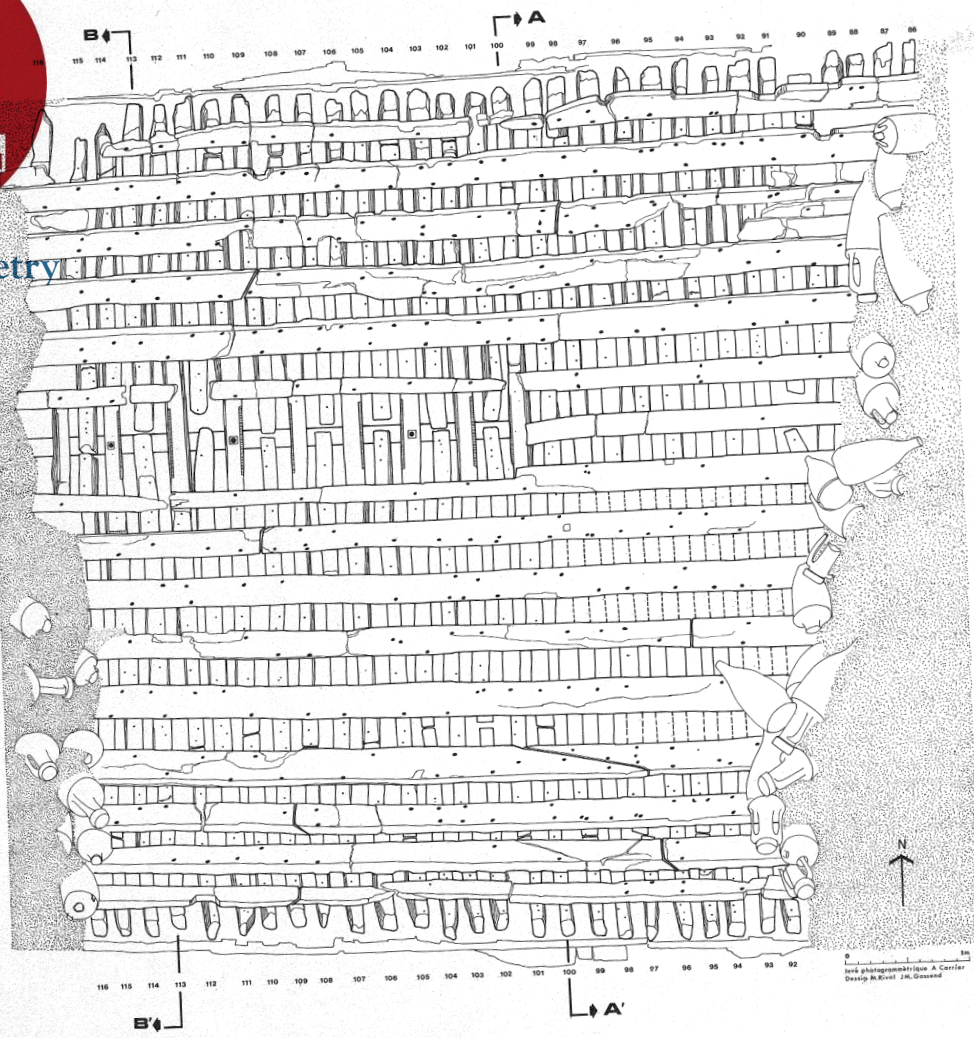 B A
116 115 114 113 112 111 110 109 108 107 106 105 104 103 102 101 100 99 98 97 96 95 94 93 92 91 90 89 88 87 86
etry
N
0 5m
levé photogrammètrique A Carrier
Dessin M.Rival J.M.Gassend
116 115 114 113 111 110 109 108 107 106 105 104 103 102 101 100 99 98 97 96 95 94 93 92
B' A'